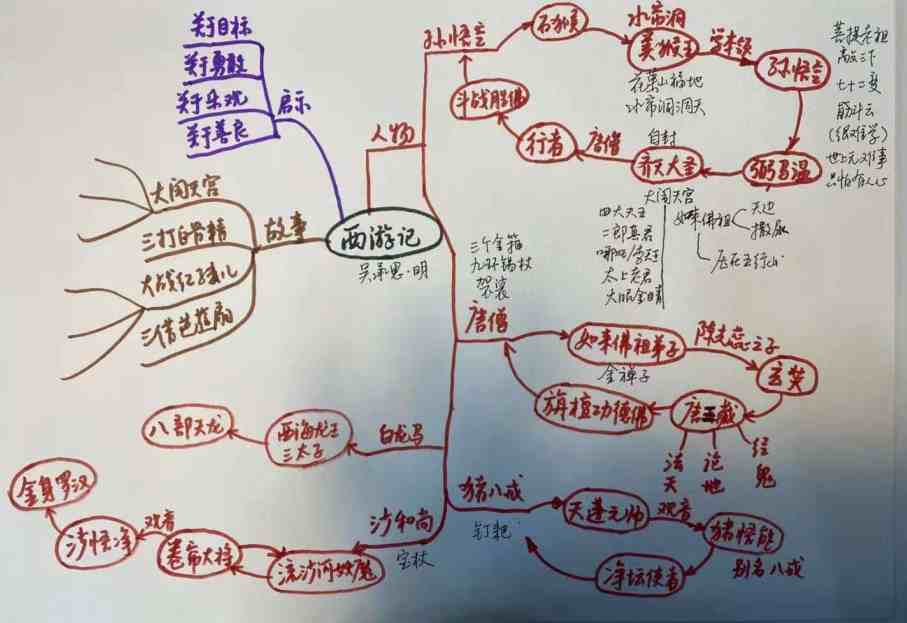 西游记
吴承恩·明
启示
关于目标
关于勇敢
关于乐观
关于善良
故事
大闹天宫
三打白骨精
大战红孩儿
三借芭蕉扇
人物
孙悟空
石猴
水帘洞
美猴王
花果山福地
水帘洞洞天
学本领
孙悟空
菩提老祖
七十二变
筋斗云
(很难学)
世上无难事
只怕有心人
弼马温
自封
齐天大圣
大闹天宫
四大天王
二郎真君
哪吒/李天王
太上老君
火眼金睛
如来佛祖
天边
撒尿
压在五行山
唐僧
行者
斗战胜佛
三个金箍
九环锡杖
袈裟
唐僧
如来佛祖弟子
金禅子
陈光蕊之子
玄奘
唐三藏
法 论 经
天 地 鬼
旃檀功德佛
白龙马
西海龙王
三太子
八部天龙
猪八戒
钉耙
天蓬元帅
观音
猪悟能
别名八戒
净坛使者
沙和尚
宝杖
流沙河妖魔
卷帘大将
观音
沙悟净
金身罗汉